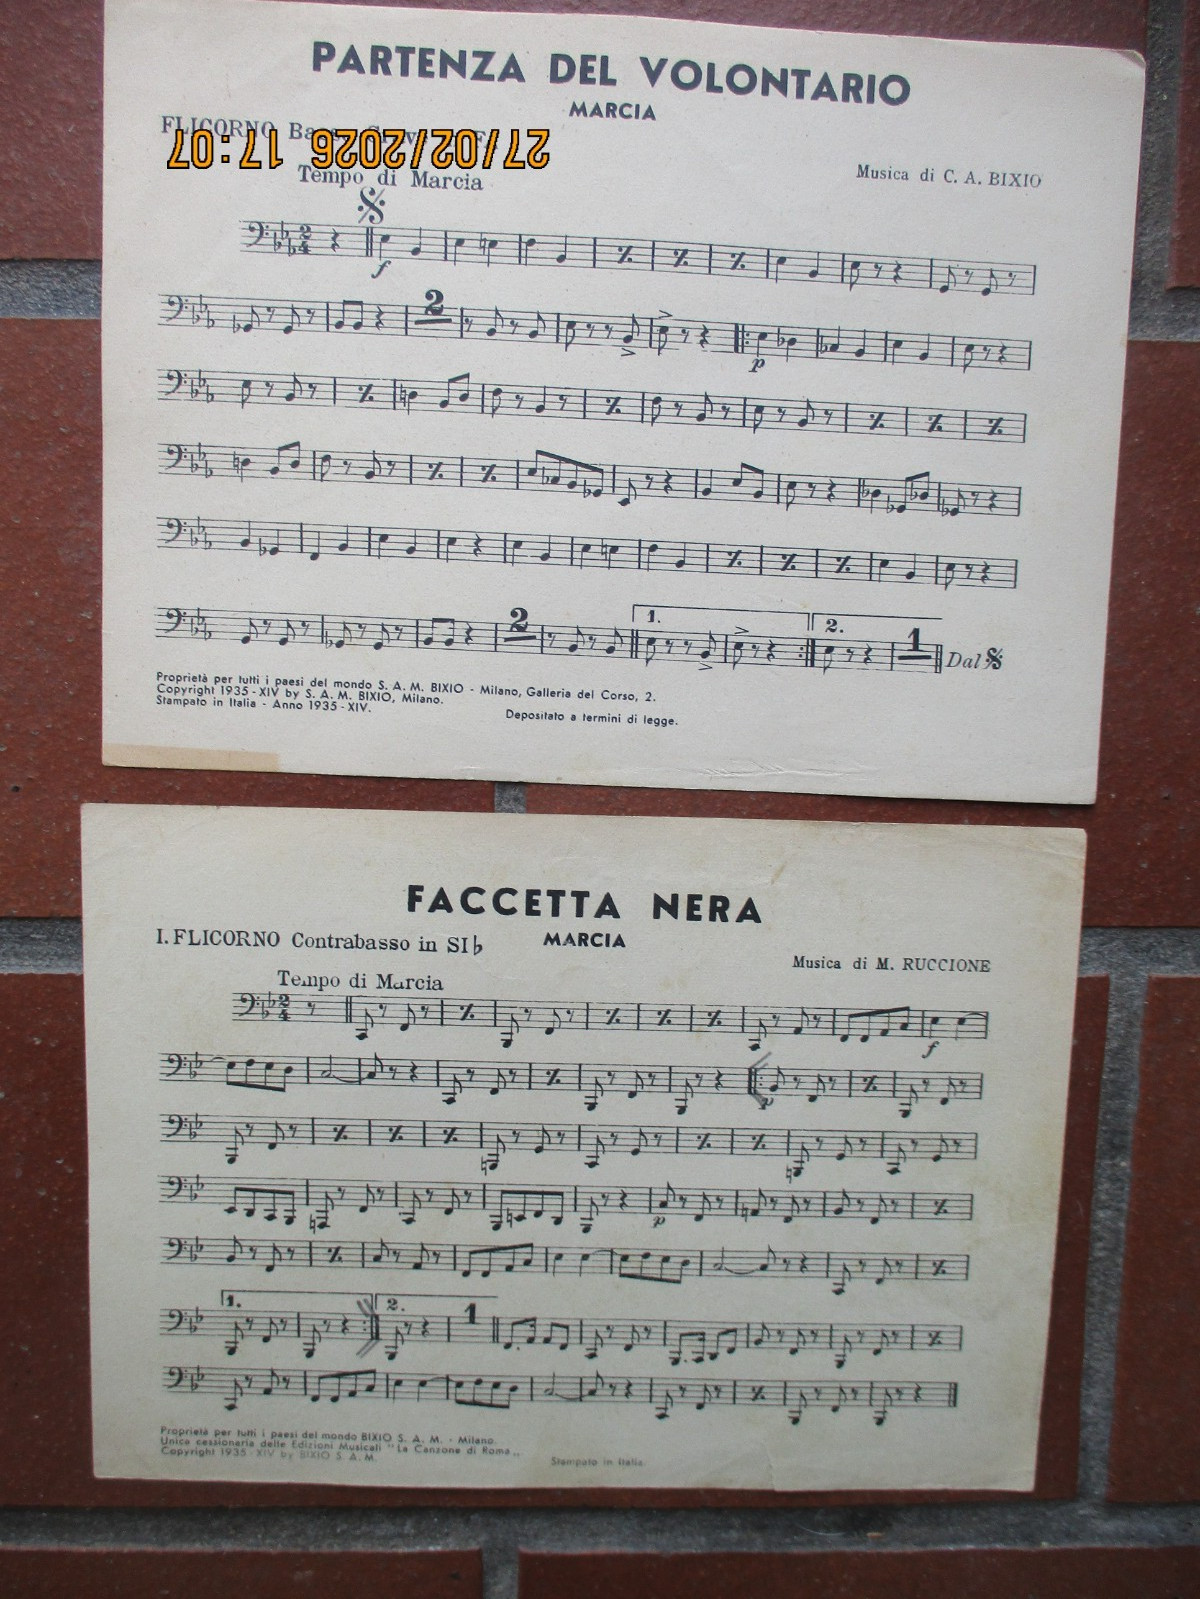 PARTENZA DEL VOLONTARIO
MARCIA
FLICORNO
27/02/2026 17:07
Tempo di Marcia
Musica di C. A. BIXIO
2
4
f
2
p
2
1.
2.
1
Dal
Proprietà per tutti i paesi del mondo S. A. M. BIXIO - Milano, Galleria del Corso, 2.
Copyright 1935 - XIV by S. A. M. BIXIO, Milano.
Stampato in Italia - Anno 1935 - XIV.
Depositato a termini di legge.
FACCETTA NERA
I. FLICORNO Contrabasso in SI♭
MARCIA
Musica di M. RUCCIONE
Tempo di Marcia
2
4
f
p
p
1.
2.
1
Proprietà per tutti i paesi del mondo BIXIO S. A. M. - Milano.
Unica cessionaria delle Edizioni Musicali "La Canzone di Roma„
Copyright 1935 - XIV by BIXIO S. A. M.
Stampato in Italia